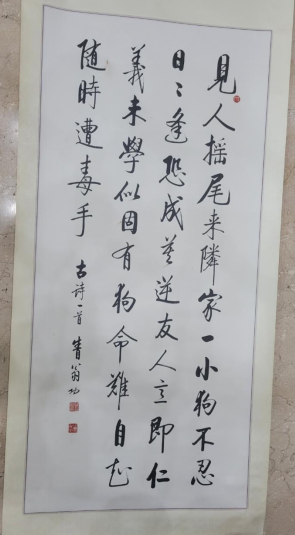 見人摇尾来隣家一小狗不忍
日〻逢恐成莫逆友人立即仁
義未學似固有狗命難自
随時遭毒手
古詩一首 翁